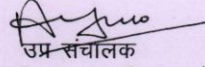 उप्र संचालक